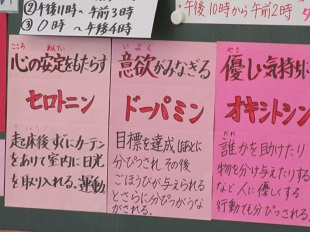 ②午後11時～午前3時
③0時～午後4時
・午後10時から午前2時
こころ あんてい
心の安定をもたらす
セロトニン
起床後すぐにカーテン
をあけて室内に日光
を取り入れる。運動
いよく
意欲がみなぎる
ドーパミン
目標を達成したあとに
分ぴつされ、その後
ごほうびが与えられる
とさらに分ぴつがうな
がされる。
やさ
優しい気持ちに
オキシトシン
だれ
誰かを助けたり
物を分け与えたりする
など人に優しくする
行動でも分ぴつされる。